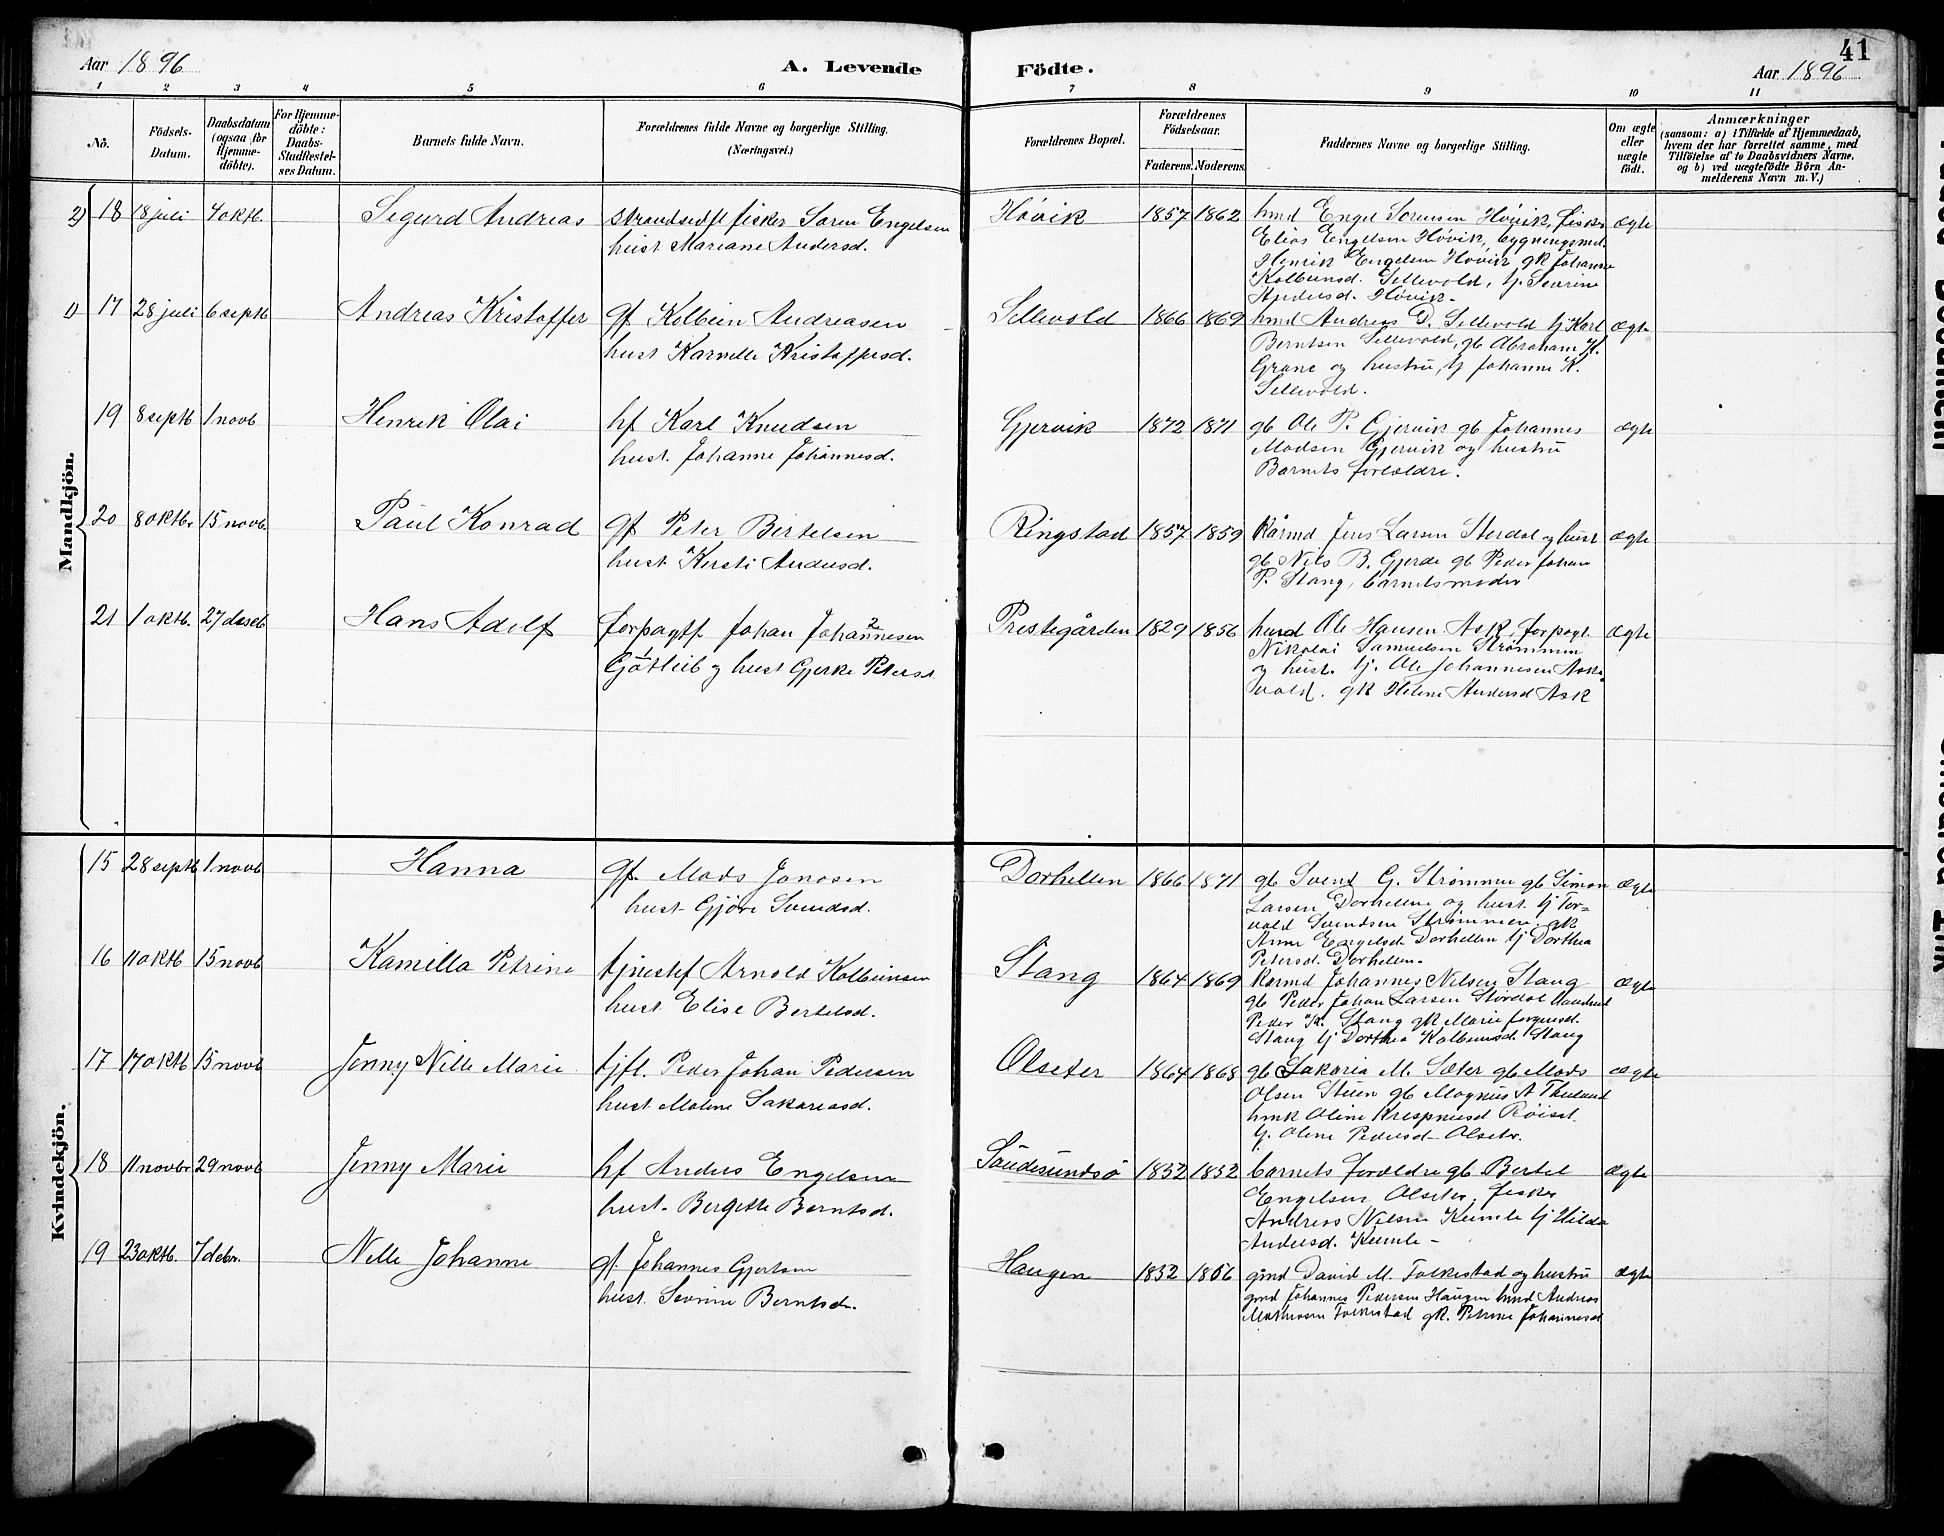 41
Aar 1896
A. Levende
Födte.
Aar 1896
1 2 3 4 5 6 7 8 9 10 11
No.
Födsels-
Datum.
Daabsdatum
(ogsaa for
Hjemme-
döbte).
For Hjemme-
döbte:
Daabs-
Stadfæstel-
ses Datum.
Barnets fulde Navn.
Forældrenes fulde Navne og borgerlige Stilling.
(Næringsvei.)
Forældrenes Bopæl.
Forældrenes
Födselsaar.
Faderens. Moderens.
Faddernes Navne og borgerlige Stilling.
Om ægte
eller
uægte
födt.
Anmærkninger
(saasom: a) i Tilfælde af Hjemmedaab,
hvem der har forrettet samme, med
Tilföielse af to Daabsvidners Navne,
og b) ved uægtefödte Börn An-
melderens Navn m. V.)
Mandkjön.
2) 18 18 juli 4 oktb. Sigurd Andreas strandsidf fisker Soren Engelsen
hust Mariane Andersd.
Hóvik 1857 1862 hmd Engel Sorensen Hóvik, fisker
Elias Engelsen Hóvik, bygningsmd.
Henrik Engelsen Hóvik, gk Johanne
Kolbeinsd. Sellevold, tj. Severine
Andersd. Hóvik.
ægte
1) 17 28 juli 6 septb Andreas Kristoffer gf Kolbein Andreasen
hust Karnelle Kristoffersd.
Sellevold 1866 1869 hmd Andreas D. Sellevold tj Karl
Berntsen Sellevold, gb Abraham K.
Grane og hustru, tj Johanne K.
Sellevold.
ægte
19 8 septb 1 novb Henrik Olai hf Karl Knudsen
hust. Johanne Johannesd.
Gjervik 1872 1871 gb Ole P. Gjervik gb Johannes
Madsen Gjervik og hustru
Barnets forældre.
ægte
20 8 oktbr 15 novb. Paul Konrad gf Peter Bertelsen
hust Kersti Andersd.
Ringstad 1857 1859 Kårmd Jens Larsen Stordal og hust
gb Nils B. Gjerde gb Peder Johan
P. Stang, barnets moder
ægte
21 1 oktb. 27 deseb Hans Adolf forpagtf. Johan Johannesen
Götlieb og hust Gjerke Petersd.
Prestegården 1829 1856 husd Ole Hansen Ask, forpagt.
Nikolai Samuelsen Strømmen
og hust. tj. Ole Johannesen Aske-
vold. gk Helene Andersd Ask
ægte
Kvindekjön.
15 28 septb 1 novb Hanna gf. Mads Jonasen
hust Gjöre Svendsd.
Dorhellen 1866 1871 gb Svend G. Strømmen gb Simon
Larsen Dorhellen og hust. tj Tor-
vald Svendsen Strømmen. gk
Anne Engelsd. Dorhellen tj Dorthea
Petersd. Dorhellen.
ægte
16 11 oktb 15 novb Kamilla Petrine tjnestef Arnold Kolbeinsen
hust Elise Bertelsd.
Stang 1864 1869 Karmd Johannes Nilsen Stang
gb Peder Johan Larsen Stordal
Peder K. Stang gk Marie
Stang tj Dorthea Kolbeinsd Stang
ægte
17 17 oktb 15 novb Jenny Nille Marie tjf. Peder Johan Pedersen
hust Malene Sakariasd.
Olseter 1864 1868 gb Sakaria M. Sæter gb Mads
Olsen Steien gb Magnus A
hmk Oline
tj. Oline Pedersd Olsetr.
ægte
18 11 novbr 29 novb Jenny Marie hf Anders Engelsen
hust. Bergitte Berntsd.
Saudesundsö 1852 1852 barnets forældre gb Bertel
Engelsen Olseter, fisker
Andreas Nilsen Kumle tj Hilda
Andersd. Kumle
ægte
19 23 oktb. 7 debr. Nille Johanne gf. Johannes Gjertsen
hust. Sevrine Berntsd.
Haugen 1852 1856 gmd David M. Folkestad og hustru
gmd Johannes Pedersen Haugen hmd Andreas
Mathiasen Folkestad gk. Petrine Johannesd
ægte